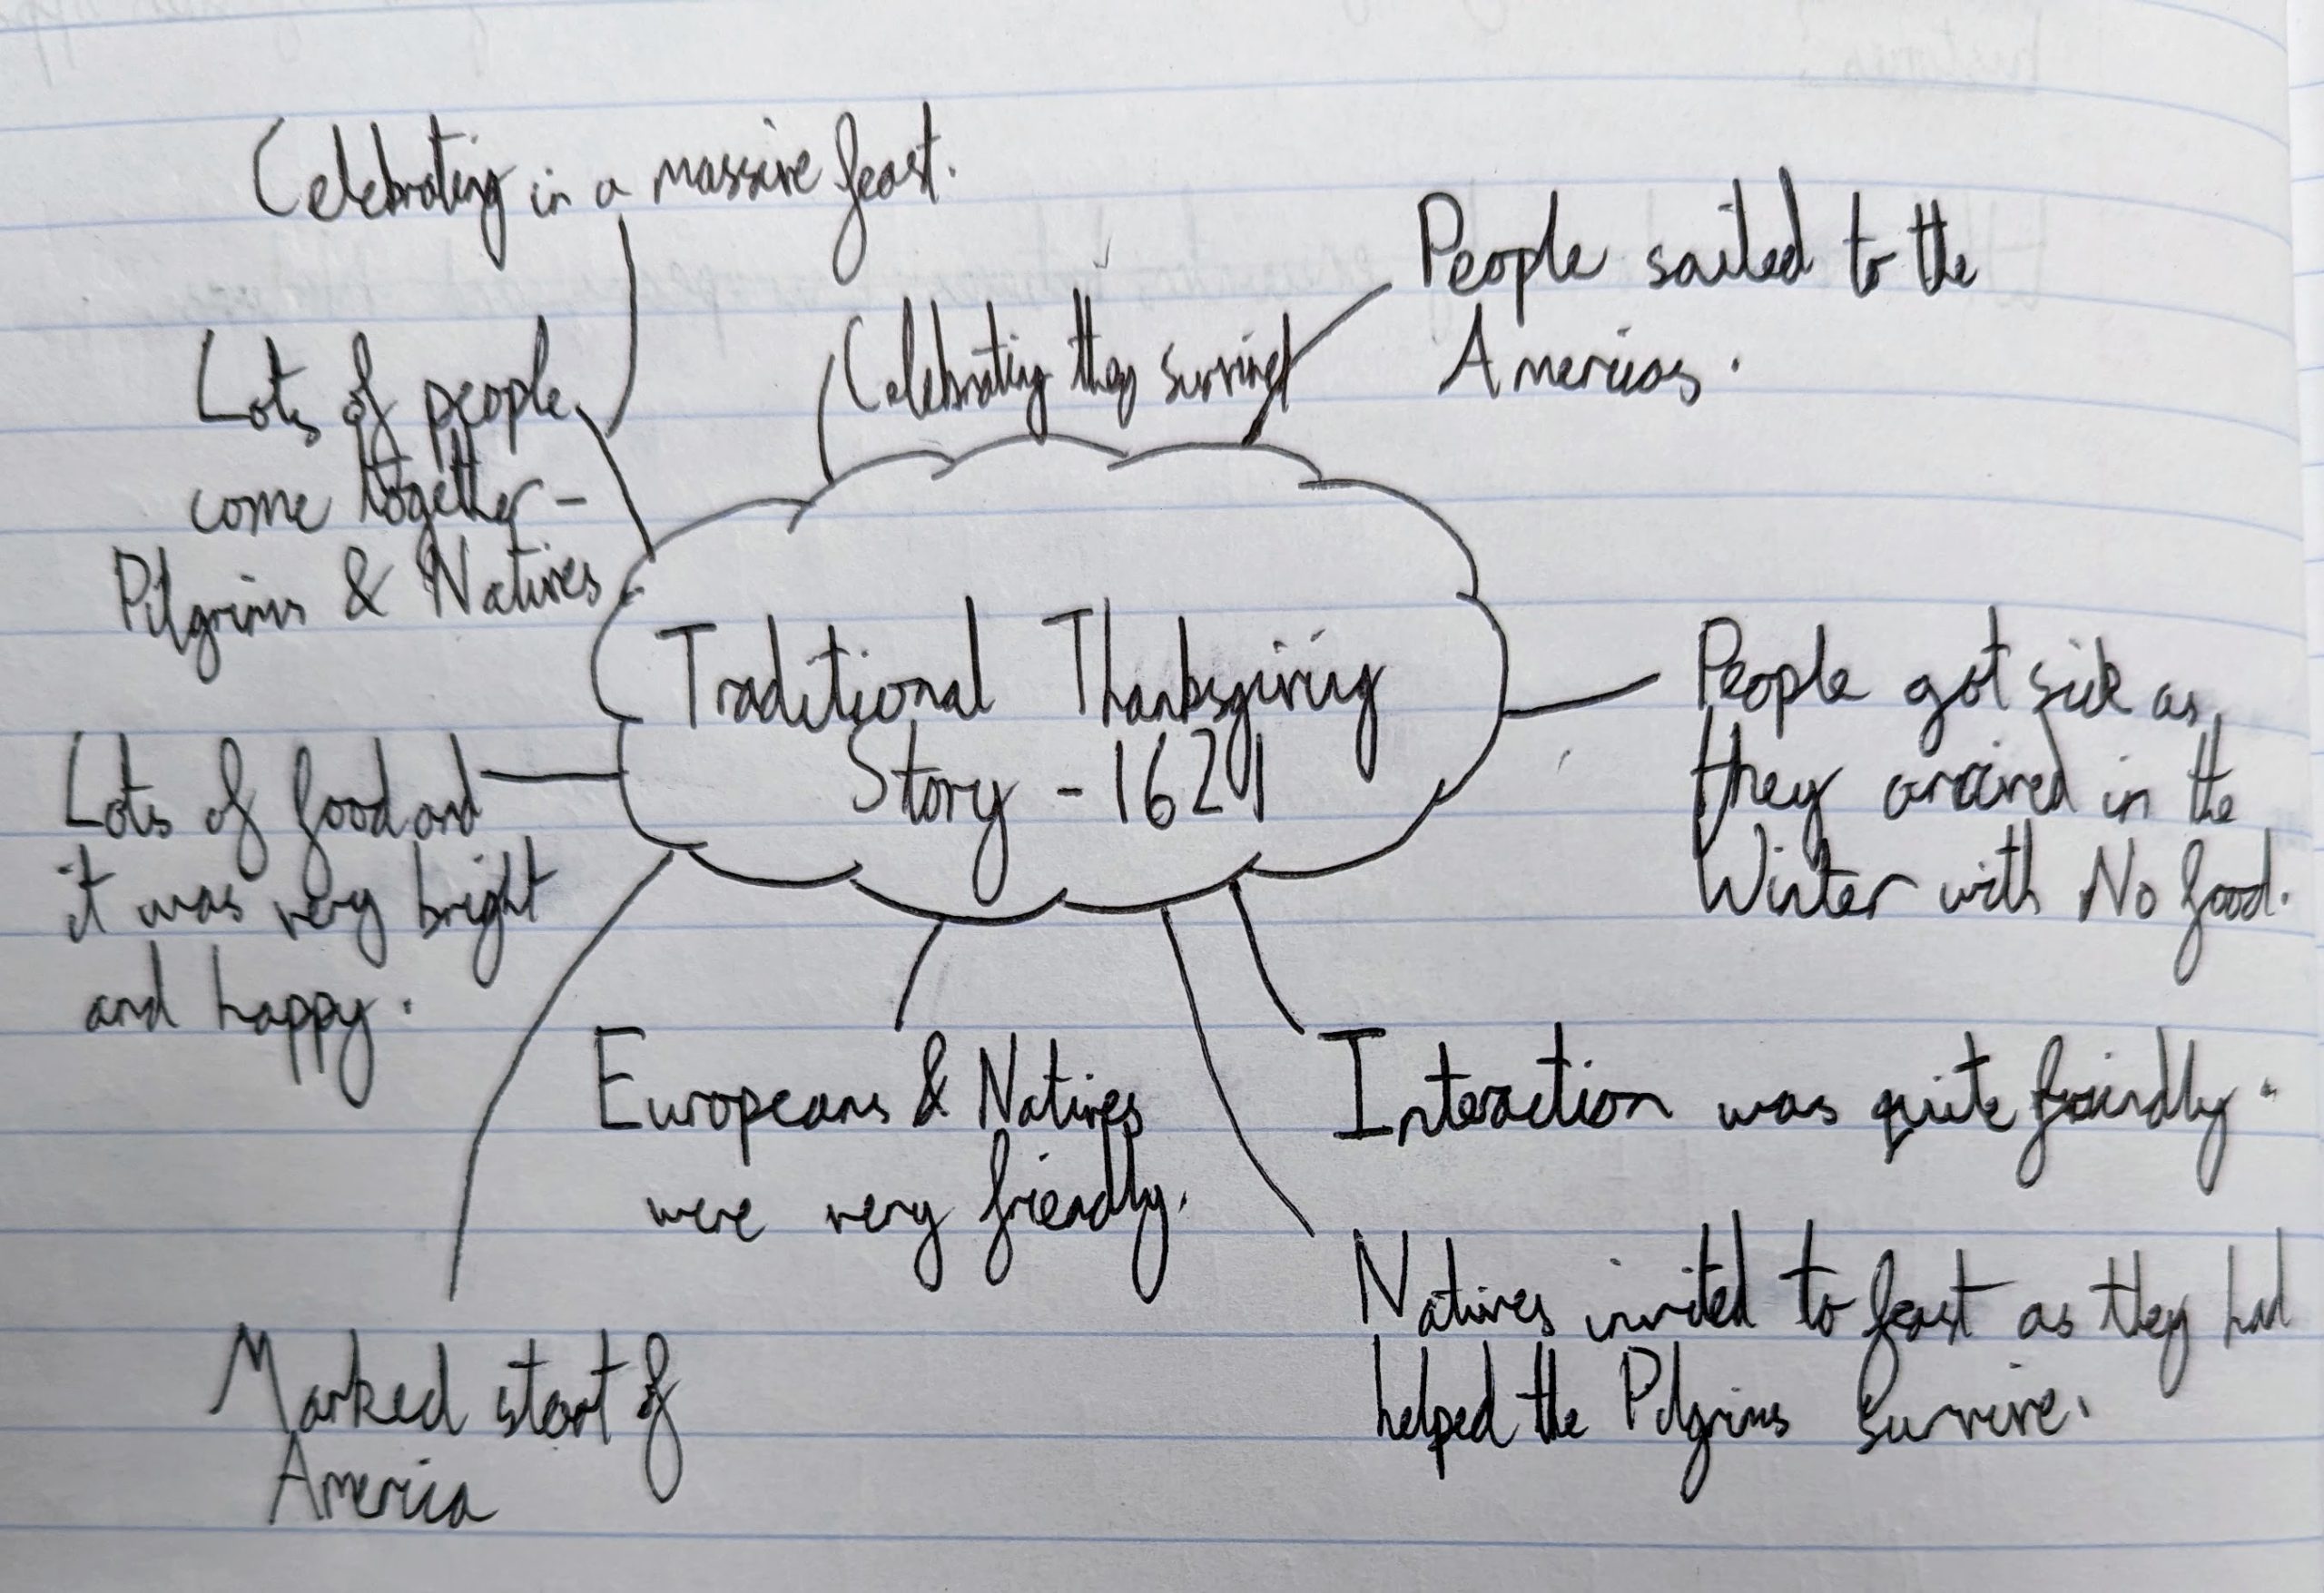 Celebrating in a massive feast.
People sailed to the
Americas.
Celebrating they survived
Lots of people
come together -
Pilgrims & Natives
Traditional Thanksgiving
Story - 1621
People got sick as
they arrived in the
Winter with No food.
Lots of food and
it was very bright
and happy.
Europeans & Natives
were very friendly.
Interaction was quite friendly.
Natives invited to feast as they had
helped the Pilgrims Survive.
Marked start of
America